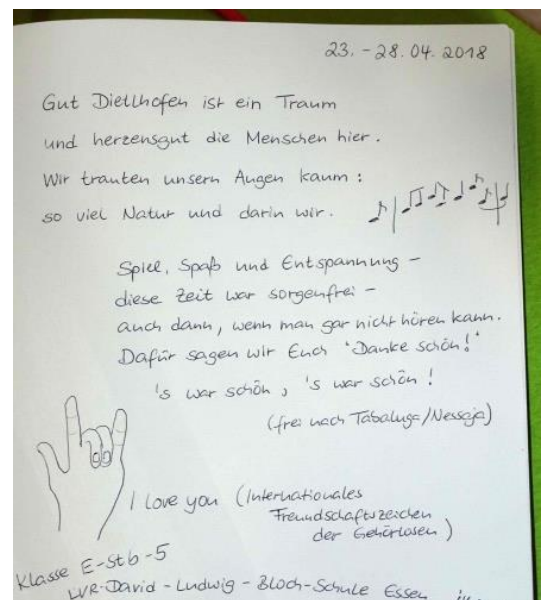 23. - 28.04.2018
Gut Dietlhofen ist ein Traum
und herzensgut die Menschen hier.
Wir trauten unsern Augen kaum:
so viel Natur und darin wir.
Spiel, Spaß und Entspannung -
diese Zeit war sorgenfrei -
auch dann, wenn man gar nicht hören kann.
Dafür sagen wir Euch 'Danke schön!'
's war schön, 's war schön!
(frei nach Tabaluga/Nessaja)
I love you (Internationales
Freundschaftszeichen
der Gehörlosen)
Klasse E-Stb-5
LVR-David-Ludwig-Bloch-Schule Essen